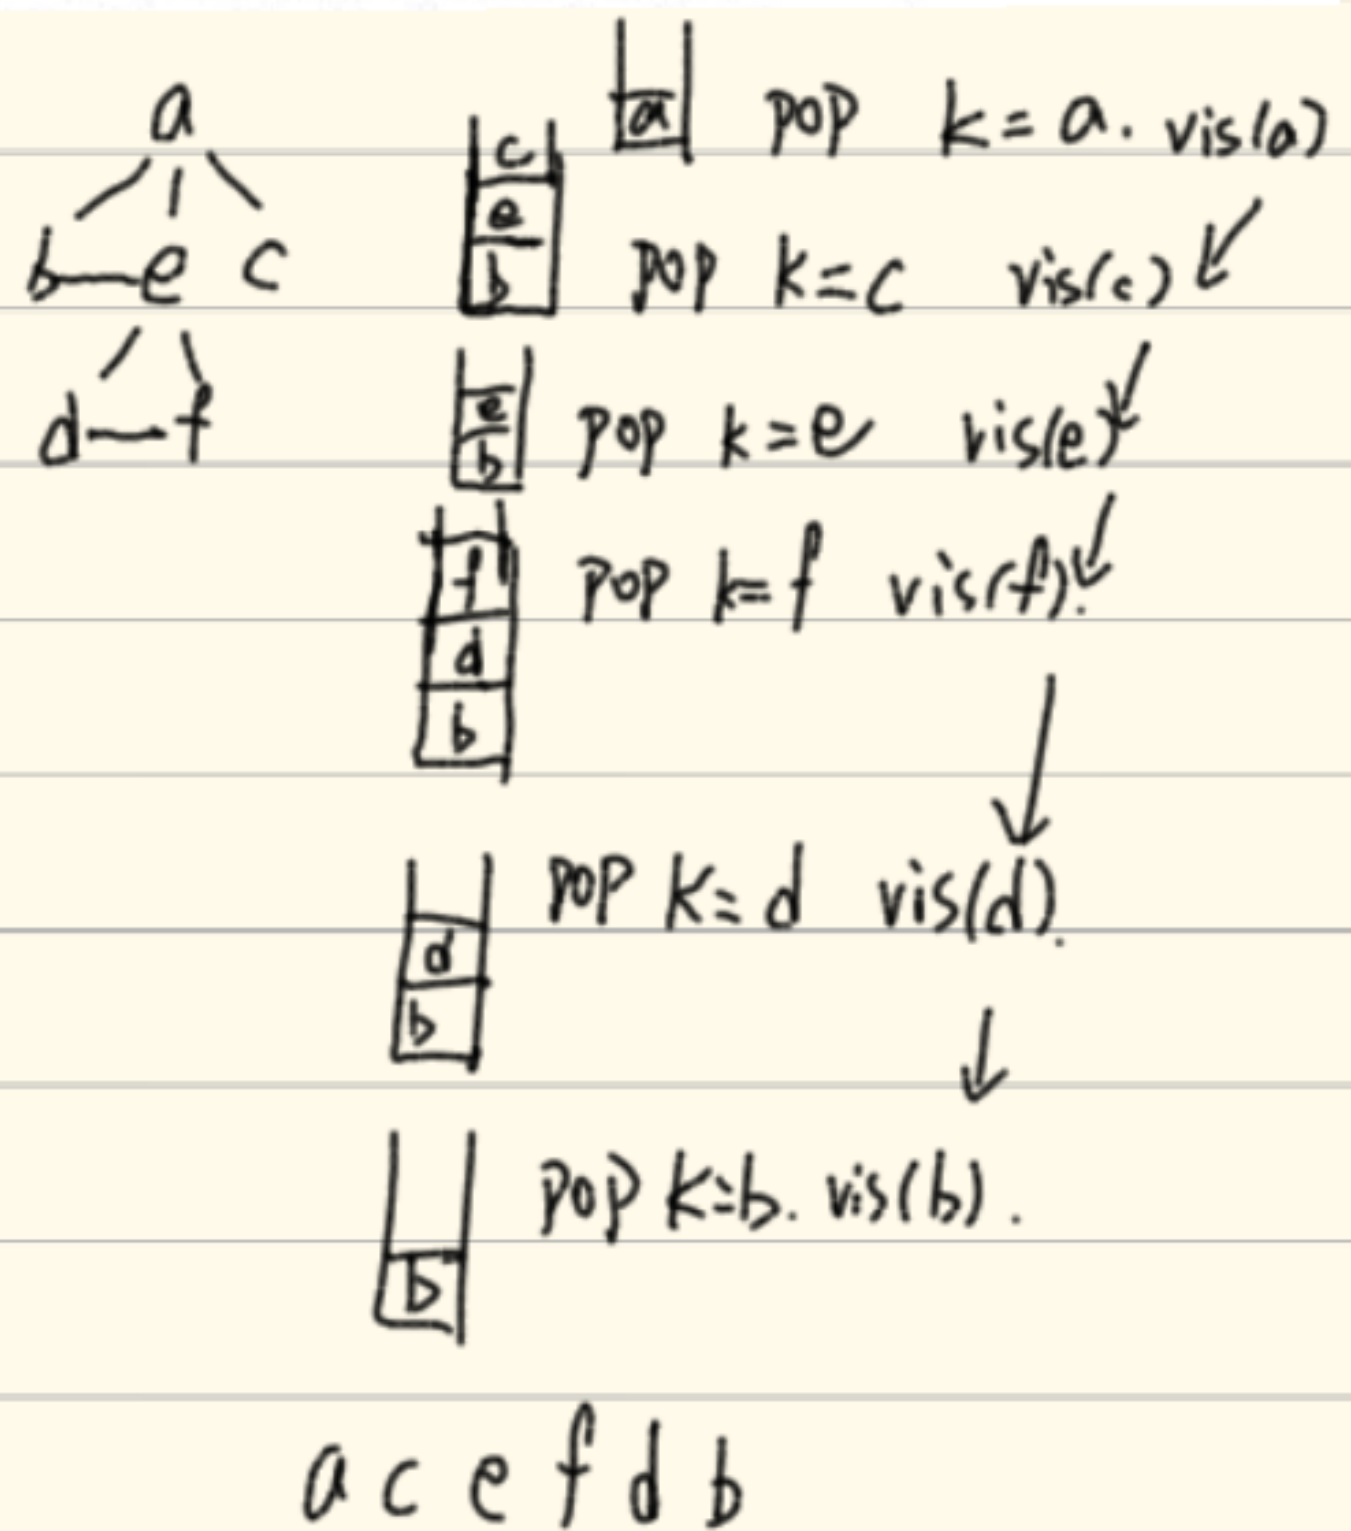 a
b e c
d f
a pop k=a. vis(a)
c
e
b pop k=c vis(c)
e
b pop k=e vis(e)
f pop k=f vis(f).
d
b
pop k=d vis(d).
d
b
pop k=b. vis(b).
b
a c e f d b